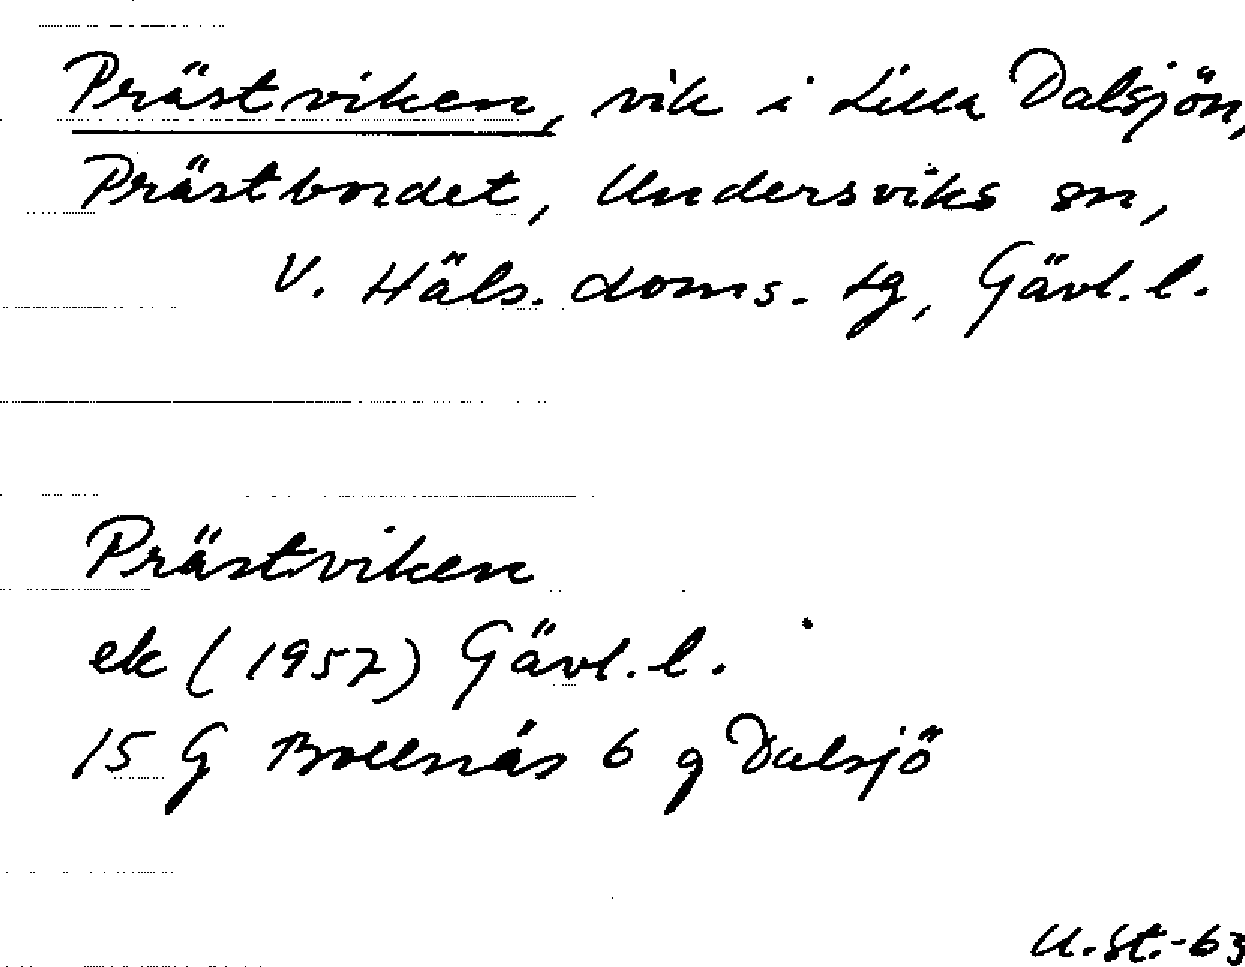 Prästviken, vik i Lilla Dalsjön,
Prästbordet, Undersviks sn,
V. Häls. doms. tg, Gävl. l.
Prästviken
ek (1957) Gävl. l.
15 G Bollnäs 6 g Dalsjö
U. St.-63